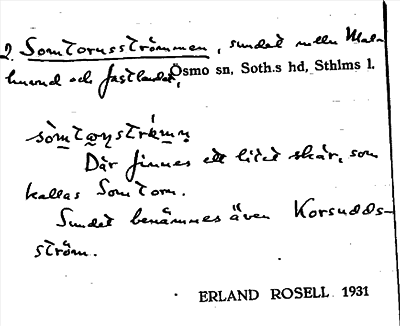 2. Somtorusströmmen, sundet mellu Mal-
huvud och fastlandet,
Ösmo sn, Soth.s hd, Sthlms l.
Där finnes ett litet skär, som
kallas Somtorn.
Sundet benämnes även Korsudds-
ström.
ERLAND ROSELL 1931